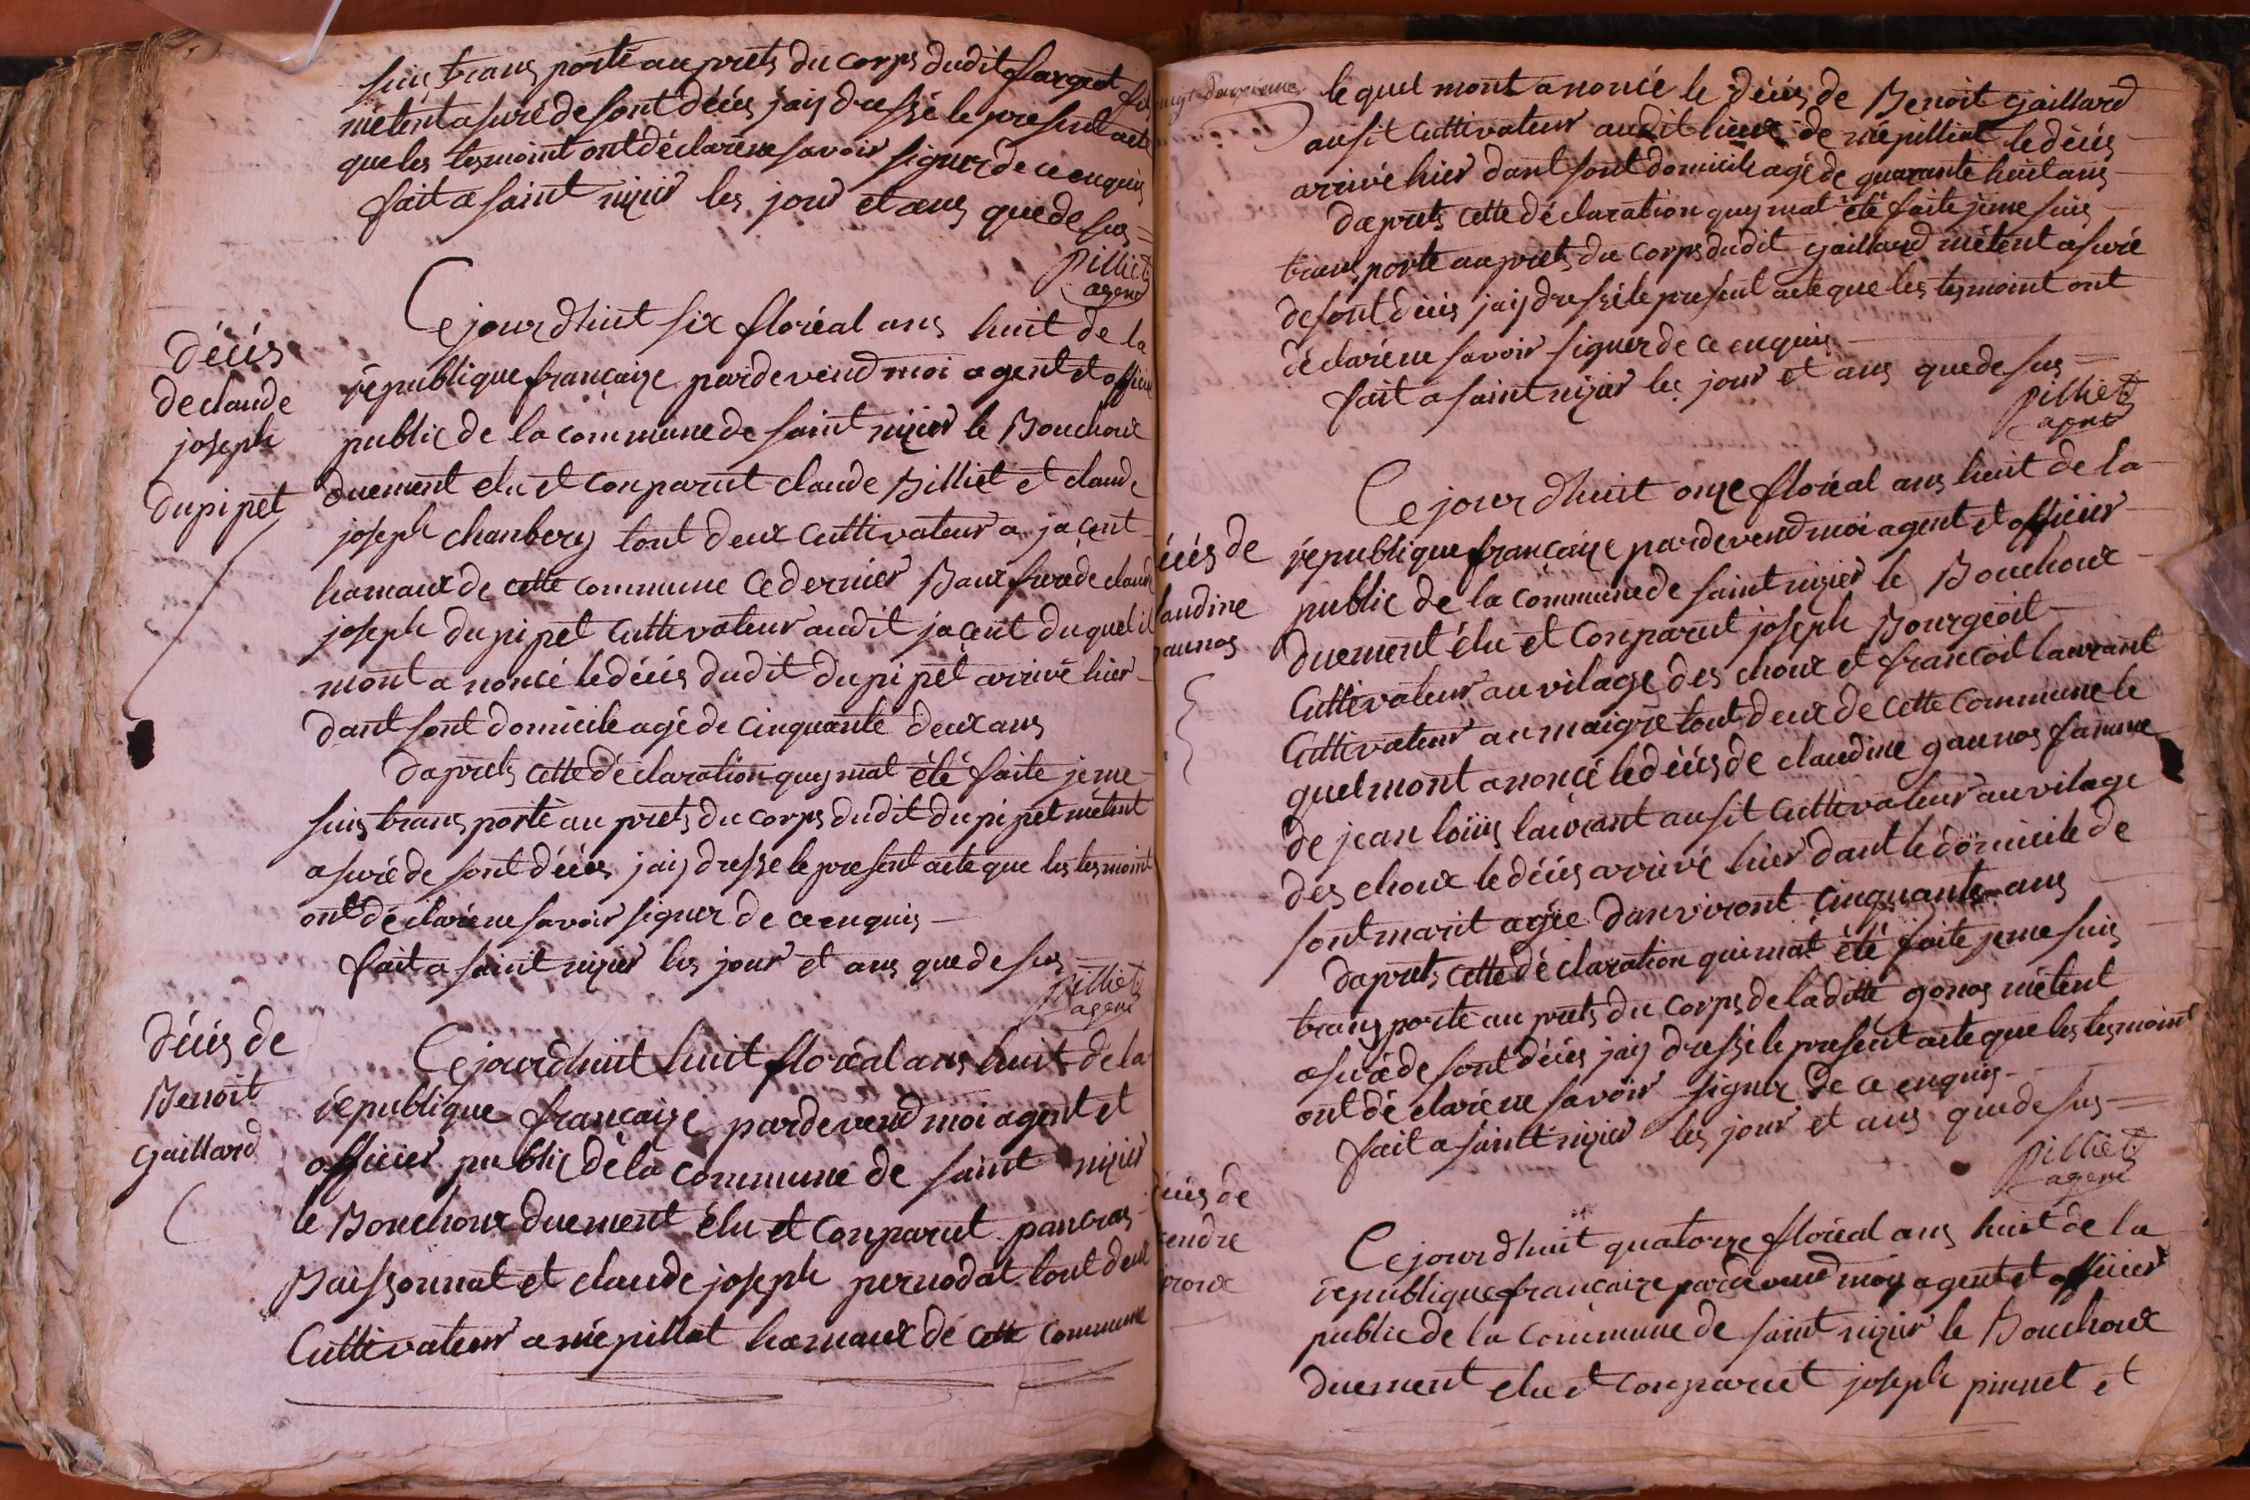 suis trans porté au prets du corps dudit fargeot
métent asuré de sont décés jaiy dressé le présent acte
que les tesmoint ont déclaré ne savoir signer de ce enquis
fait a saint nizier les jour et ans que de sus
pilliet
agent
décés
de claude
joseph
dupipet
Ce jourdhuit six floréal ans huit de la
république françaize pardevend moi agent et officier
public de la commune de saint nizier le Bouchoux
duement elu et conparut claude Billiet et claude
joseph chanbery tout deux cultivateur a jacent
hamaux de cette commune ce dernier Baux frere de claude
joseph dupipet cultivateur audit jacent du quel il
mont a noncé le décés dudit dupipet arrivé hier
dant sont domicile agé de cinquante deux ans
daprets cette déclaration quy mat été faite je me
suis trans porté au prets du corps dudit dupipet métent
asuré de sont décés jaiy dressé le present acte que les tesmoint
ont déclaré ne savoir signer de ce enquis
fait a saint nizier les jour et ans que de sus
pilliet
agent
décés de
Benoit
gaillard
Ce jourdhuit huit floréal ans huit de la
république françaize pardevend moi agent et
officier public de la commune de saint nizier
le Bouchoux duement élu et conparut pancras
Baissonnat et claude joseph pernodat tout deux
Cultivateur a mépillat hamaux de cette commune
le quel mont a noncé le décés de Benoit gaillard
ausit cultivateur audit lieux de mépilliat le décés
arrivé hier dant sont domicile agé de quarante huit ans
daprets cette déclaration quy mat été faite je me suis
trans porté au prets du corps dudit gaillard métent asuré
de sont décés jaiy dressé le present acte que les tesmoint ont
déclaré ne savoir signer de ce enquis
fait a saint nizier les jour et ans que de sus
pilliet
agent
écés de
laudine
aunos
Ce jour dhuit onze floréal ans huit de la
république françaize pardevend moi agent et officier
public de la commune de saint nizier le Bouchoux
duement élu et conparut joseph Bourgeoit
Cultivateur au vilage des choux et francoit laurant
Cultivateur au maigre tout deux de cette commune le
quel mont a noncé le décés de claudine gaunos famme
de jean loüis laurant ausit cultivateur au vilage
des choux le décés arrivé hier dant le domicile de
sont marit agée danviront cinquante ans
daprets cette déclaration qui mat été faite je me suis
trans porté au prets du corps de la ditte gonos métent
asuré de sont décés jaiy dressé le present acte que les tesmoint
ont déclaré ne savoir signer de ce enquis
fait a saint nizier les jour et ans que de sus
pilliet
agent
écés de
endre
roux
Ce jour dhuit quatorze floréal ans huit de la
république françaize pardevend moy agent et officier
public de la commune de saint nizier le Bouchoux
duement elu et conparut joseph pinnet et